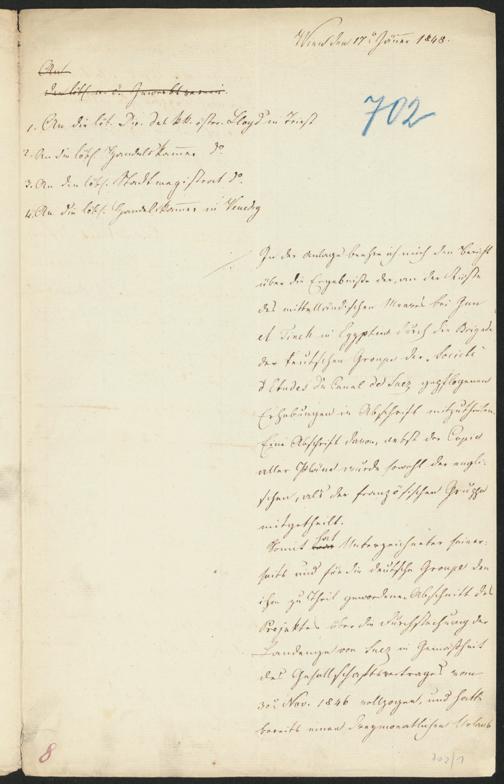 Wien den 17t Jänner 1848.
An
den löbl. n. ö. Gewerbsverein.
702
1. An die löb. Dir. des kk. österr. Lloyd in Triest
2. An die löbl. Handelskammer do
3. An den löbl. Stadtmagistrat do.
4. An die löbl. Handelskammer in Venedig
In der Anlage beehre ich mich den Bericht
über die Ergebnisse der, an der Küste
des mittelländischen Meeres bei
et Tineh in Egypten durch die Brigade
der deutschen Groupe der „Societé
d'Etudes du Canal de Suez gepflogenen
Erhebungen in Abschrift mitzutheilen.
Eine Abschrift davon, nebst der Copie
aller Pläne wurde sowohl der engli-
schen, als der französischen Gruppe
mitgetheilt.
Somit hat Unterzeichneter seiner-
seits und für die deutsche Groupe den
ihr zu Theil gewordenen Abschnitt des
Projektes über die Durchstechung der
Landenge von Suez in Gemäßheit
des Gesellschaftsvertrages vom
30t Nov. 1846 vollzogen, und hatte
bereits einen dreymonatlichen Urlaub
8
702/1